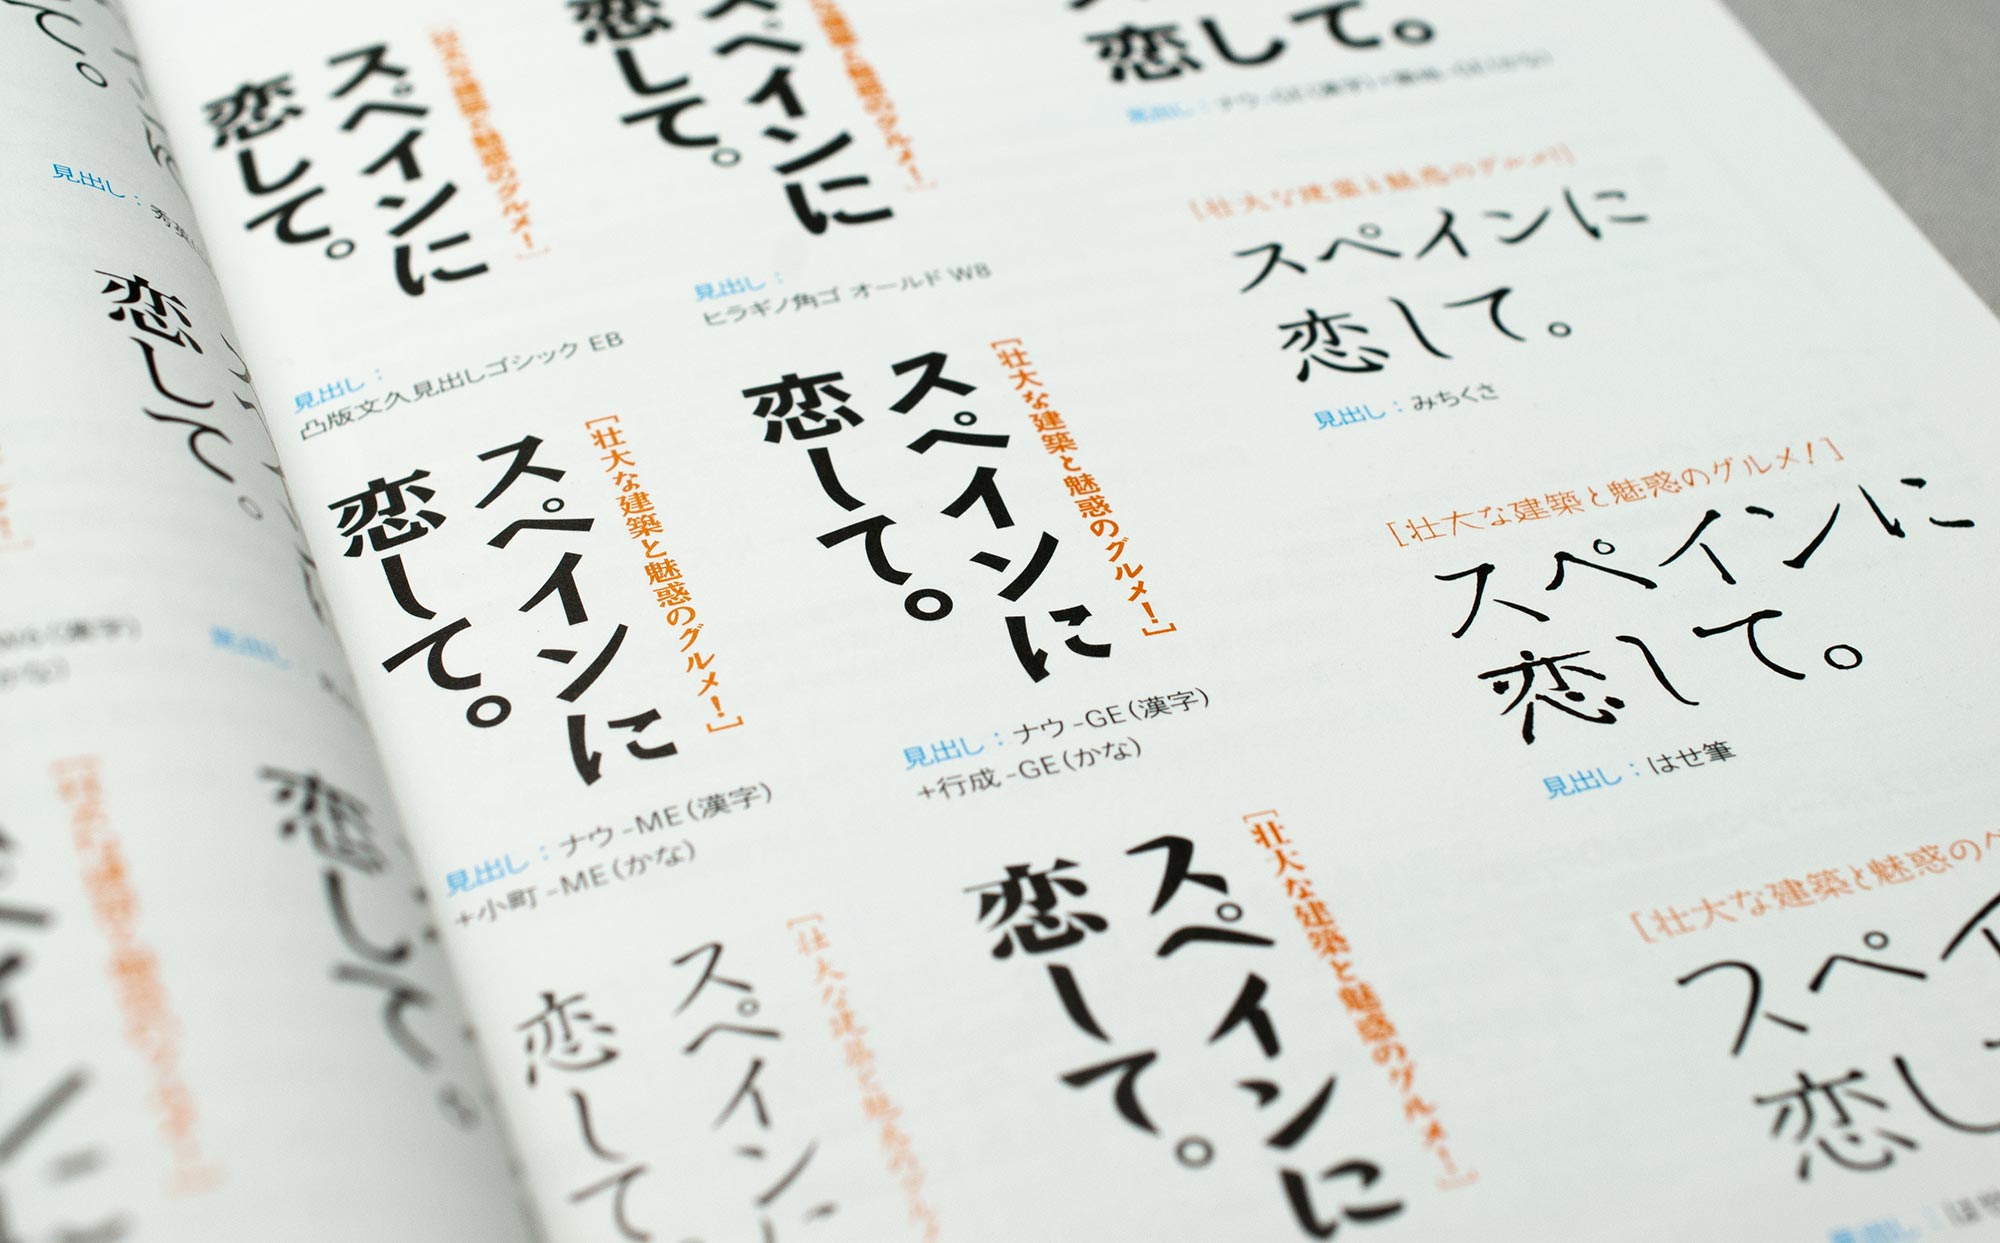 恋して。
見出し：
恋して。
[壮大な建築と魅惑のグルメ！]
スペインに
恋して。
見出し：
凸版文久見出しゴシック EB
[壮大な建築と魅惑のグルメ！]
スペインに
恋して。
見出し：ナウ-ME（漢字）
+小町-ME（かな）
[壮大な建築と魅惑のグルメ！]
スペインに
恋して。
のグルメ！]
スペインに
恋して。
見出し：
ヒラギノ角ゴ オールド W8
[壮大な建築と魅惑のグルメ！]
スペインに
恋して。
見出し：ナウ-GE（漢字）
+行成-GE（かな）
[壮大な建築と魅惑のグルメ！]
スペインに
恋して。
恋して。
[壮大な建築と魅惑のグルメ！]
スペインに
恋して。
見出し：みちくさ
[壮大な建築と魅惑のグルメ！]
スペインに
恋して。
見出し：はせ筆
[壮大な建築と魅惑の
スペイ
恋し